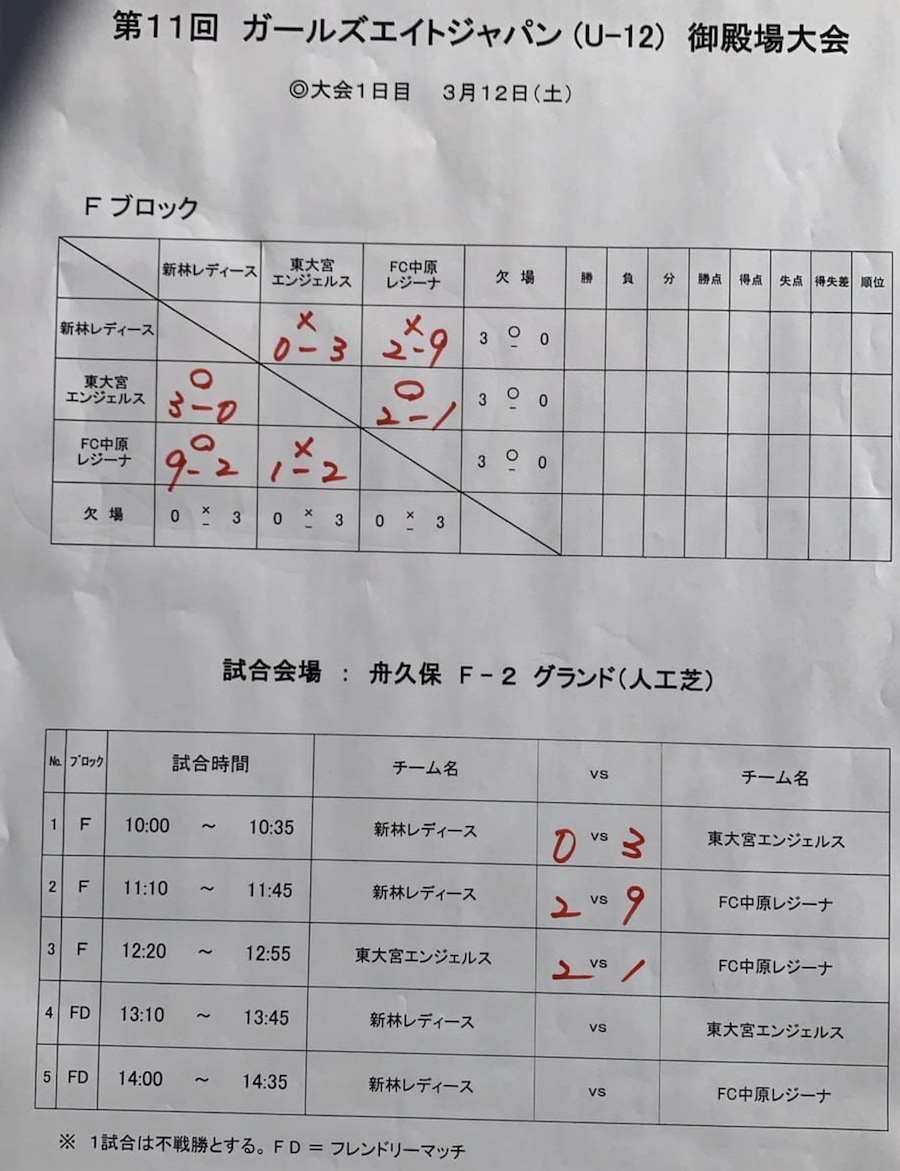 第11回 ガールズエイトジャパン(U-12) 御殿場大会
◎大会1日目 3月12日(土)
F ブロック
新林レディース 東大宮エンジェルス FC中原レジーナ 欠 場 勝 負 分 勝点 得点 失点 得失差 順位
新林レディース × 0-3 × 2-9 3 ○ - 0
東大宮エンジェルス ○ 3-0 ○ 2-1 3 ○ - 0
FC中原レジーナ ○ 9-2 × 1-2 3 ○ - 0
欠 場 0 × - 3 0 × - 3 0 × - 3
試合会場 : 舟久保 F-2 グランド(人工芝)
No. ブロック 試合時間 チーム名 vs チーム名
1 F 10:00 ~ 10:35 新林レディース 0 vs 3 東大宮エンジェルス
2 F 11:10 ~ 11:45 新林レディース 2 vs 9 FC中原レジーナ
3 F 12:20 ~ 12:55 東大宮エンジェルス 2 vs 1 FC中原レジーナ
4 FD 13:10 ~ 13:45 新林レディース vs 東大宮エンジェルス
5 FD 14:00 ~ 14:35 新林レディース vs FC中原レジーナ
※ 1試合は不戦勝とする。FD = フレンドリーマッチ